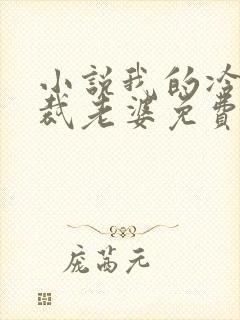 小説我的冷
裁老婆免費
庞茜元